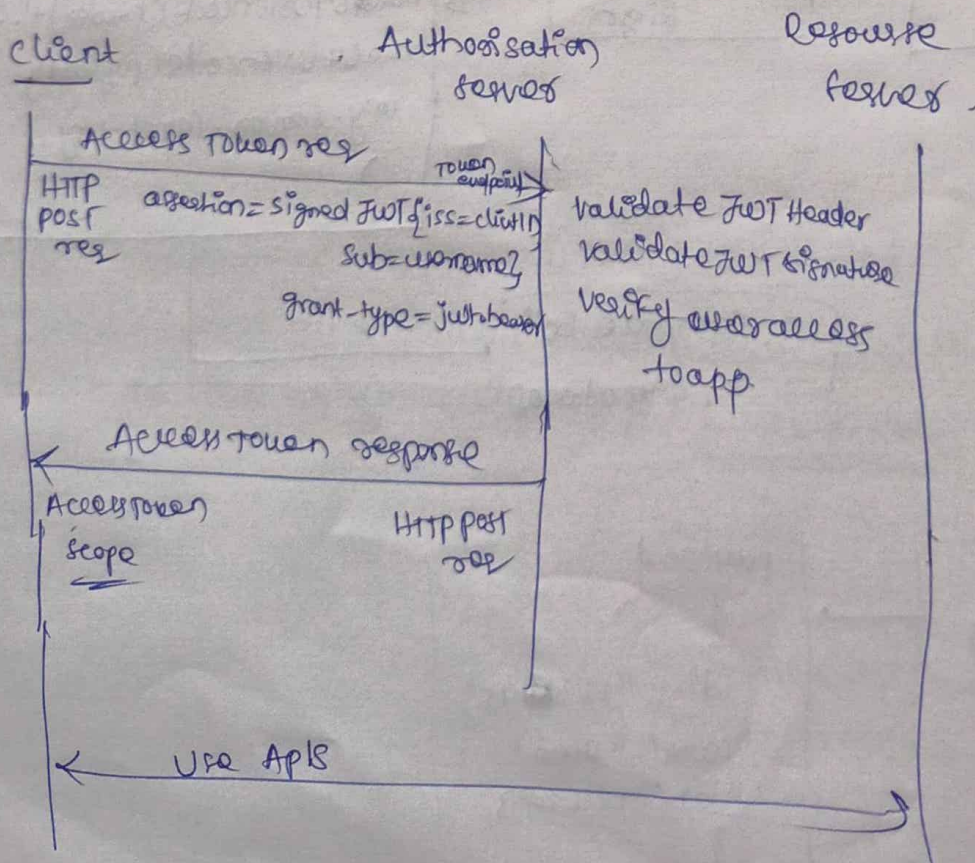 Client
Authorisation
server
Resourse
server
Acecess Token req
Token
endpoint
HTTP
post
req
assestion = signed JWT {iss=clientID
sub=username}
grant-type = jwt-bearer
validate JWT Header
validate JWT signature
verify user access
to app
Access Token response
Access Token
scope
HTTP post
req
Use APIS